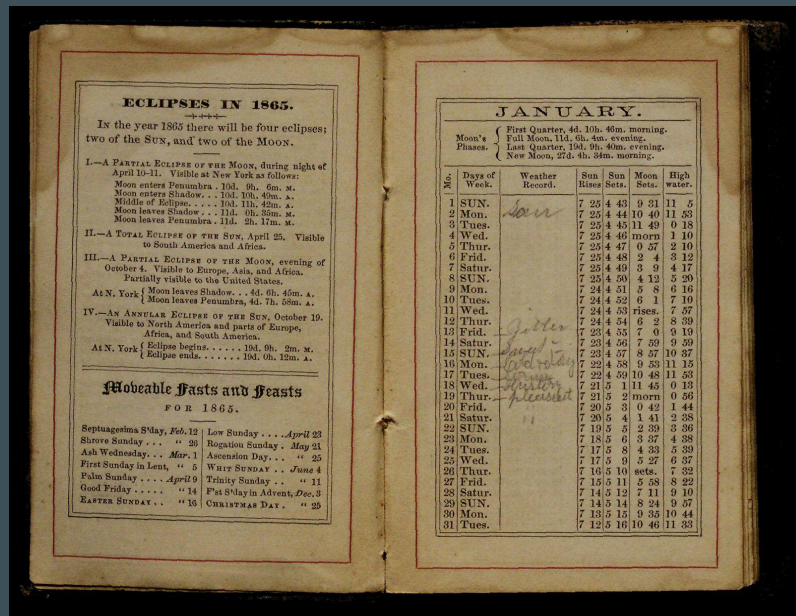 ECLIPSES IN 1865.
In the year 1865 there will be four eclipses;
two of the Sun, and two of the Moon.
I.—A Partial Eclipse of the Moon, during night of
April 10-11. Visible at New York as follows:
Moon enters Penumbra . 10d. 9h. 6m. M.
Moon enters Shadow . . . 10d. 10h. 49m. A.
Middle of Eclipse. . . . . 10d. 11h. 42m. A.
Moon leaves Shadow . . . 11d. 0h. 35m. M.
Moon leaves Penumbra . 11d. 2h. 17m. M.
II.—A Total Eclipse of the Sun, April 25. Visible
to South America and Africa.
III.—A Partial Eclipse of the Moon, evening of
October 4. Visible to Europe, Asia, and Africa.
Partially visible to the United States.
At N. York { Moon leaves Shadow. . . 4d. 6h. 45m. A.
Moon leaves Penumbra, 4d. 7h. 58m. A.
IV.—An Annular Eclipse of the Sun, October 19.
Visible to North America and parts of Europe,
Africa, and South America.
At N. York { Eclipse begins. . . . . . 19d. 9h. 2m. M.
Eclipse ends. . . . . . . 19d. 0h. 12m. A.
Moveable Fasts and Feasts
FOR 1865.
Septuagesima S'day, Feb. 12
Shrove Sunday . . . " 26
Ash Wednesday. . . Mar. 1
First Sunday in Lent, " 5
Palm Sunday . . . . April 9
Good Friday . . . . . " 14
Easter Sunday . . " 16
Low Sunday . . . . April 23
Rogation Sunday. May 21
Ascension Day. . . " 25
Whit Sunday . . June 4
Trinity Sunday . . " 11
F'st S'day in Advent, Dec. 3
Christmas Day . " 25
JANUARY.
Moon's Phases. { First Quarter, 4d. 10h. 46m. morning.
Full Moon, 11d. 6h. 4m. evening.
Last Quarter, 19d. 9h. 40m. evening.
New Moon, 27d. 4h. 34m. morning.
Mo. Days of Week. Weather Record. Sun Rises Sun Sets. Moon Sets. High water.
1 SUN. 7 25 4 43 9 31 11 5
2 Mon. 7 25 4 44 10 40 11 53
3 Tues. 7 25 4 45 11 49 0 18
4 Wed. 7 25 4 46 morn 1 10
5 Thur. 7 25 4 47 0 57 2 10
6 Frid. 7 25 4 48 2 4 3 12
7 Satur. 7 25 4 49 3 9 4 17
8 SUN. 7 25 4 50 4 12 5 20
9 Mon. 7 24 4 51 5 8 6 16
10 Tues. 7 24 4 52 6 1 7 10
11 Wed. 7 24 4 53 rises. 7 57
12 Thur. 7 24 4 54 6 2 8 39
13 Frid. 7 23 4 55 7 0 9 19
14 Satur. 7 23 4 56 7 59 9 59
15 SUN. 7 23 4 57 8 57 10 37
16 Mon. 7 22 4 58 9 53 11 15
17 Tues. 7 22 4 59 10 48 11 53
18 Wed. 7 21 5 1 11 45 0 13
19 Thur. pleasant 7 21 5 2 morn 0 56
20 Frid. " 7 20 5 3 0 42 1 44
21 Satur. " 7 20 5 4 1 41 2 38
22 SUN. 7 19 5 5 2 39 3 36
23 Mon. 7 18 5 6 3 37 4 38
24 Tues. 7 17 5 8 4 33 5 39
25 Wed. 7 17 5 9 5 27 6 37
26 Thur. 7 16 5 10 sets. 7 32
27 Frid. 7 15 5 11 5 58 8 22
28 Satur. 7 14 5 12 7 11 9 10
29 SUN. 7 14 5 14 8 24 9 57
30 Mon. 7 13 5 15 9 35 10 44
31 Tues. 7 12 5 16 10 46 11 33